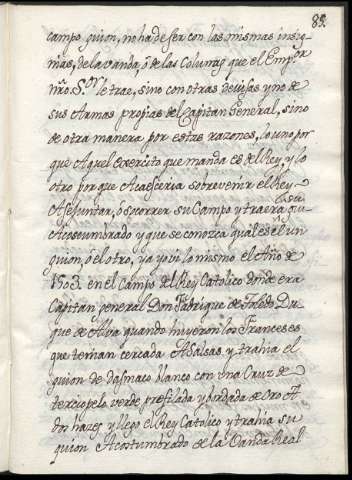 89.
campo guion, no ha de ser con las mismas insig-
nias, de la vanda, ó de las Columnas que el Empor.
nro. S.or le trae, sino con otras devisas y no de
sus Armas propias del Capitan General, sino
de otra manera por estas razones, lo uno por
que Aquel exercito que manda es del Rey, y lo
otro por que Acaesceria sobrevenir el Rey
A se juntar, ó socorrer su Campo y traera su
Acostumbrado y que se conozca qual es el un
guion, ó el otro, ya yo vi lo mismo el Año de
1503. en el campo del Rey Catolico donde era
Capitan general Don Fabrique de Toledo Du-
que de Alba quando huyeron los Franceses
que tenian cercada A Salsas y trahia el
guion de damaco blanco con una Cruz de
terciopelo verde perfilada y bordada de Oro A
dos hazes, y llego el Rey Catolico y trahia su
guion Acostumbrado de la Vanda Real